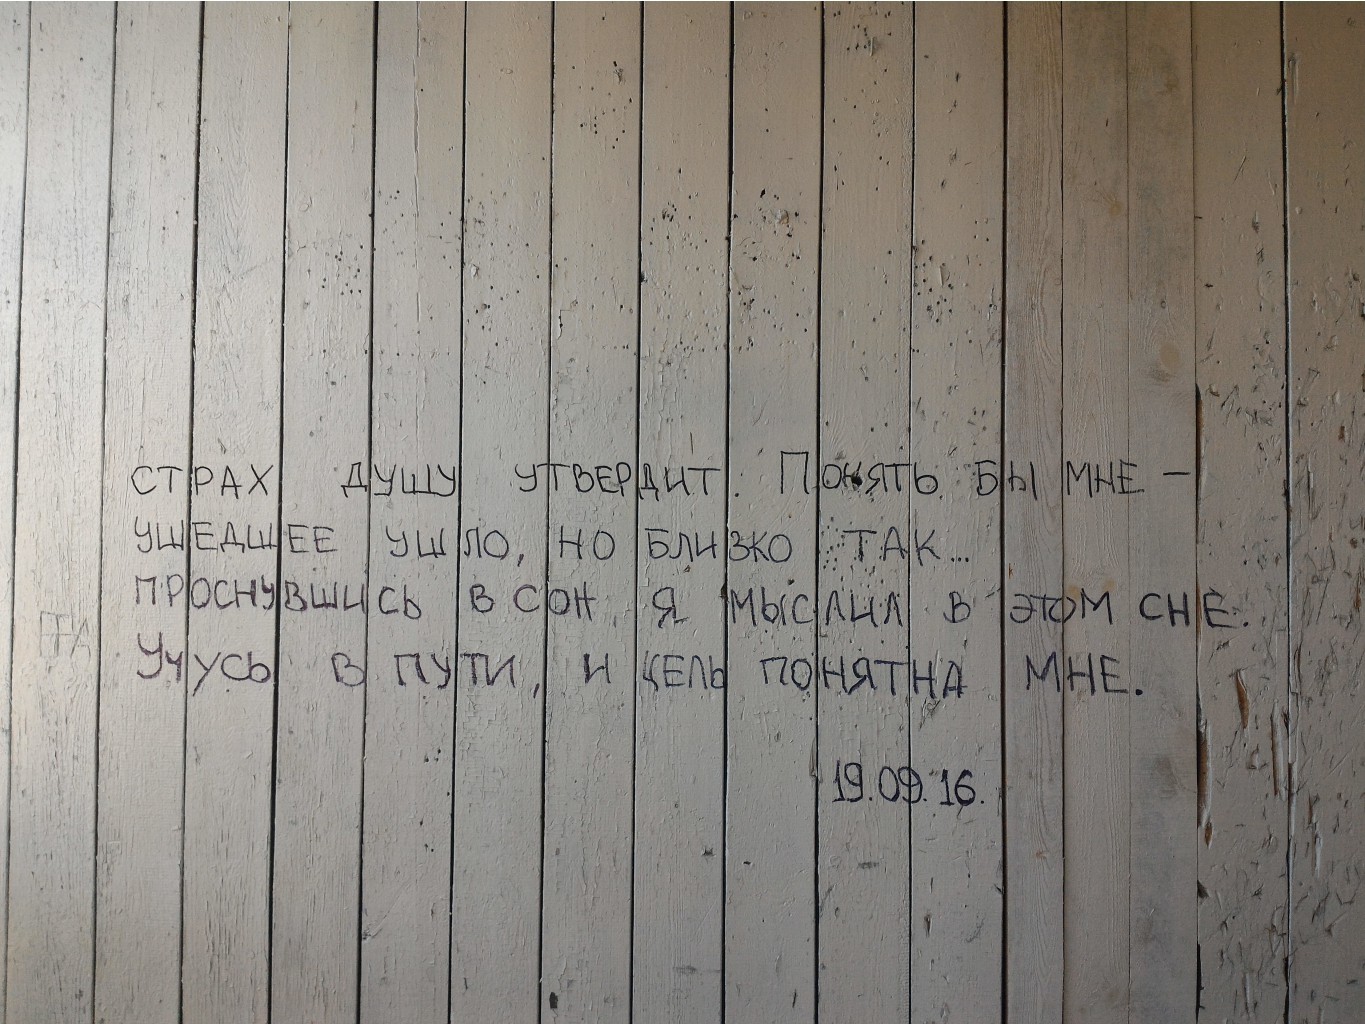 СТРАХ ДУШУ УТВЕРДИТ. ПОНЯТЬ БЫ МНЕ –
УШЕДШЕЕ УШЛО, НО БЛИЗКО ТАК...
ПРОСНУВШИСЬ В СОН Я МЫСЛИЛ В ЭТОМ СНЕ.
УЧУСЬ В ПУТИ, И ЦЕЛЬ ПОНЯТНА МНЕ.
19.09.16.